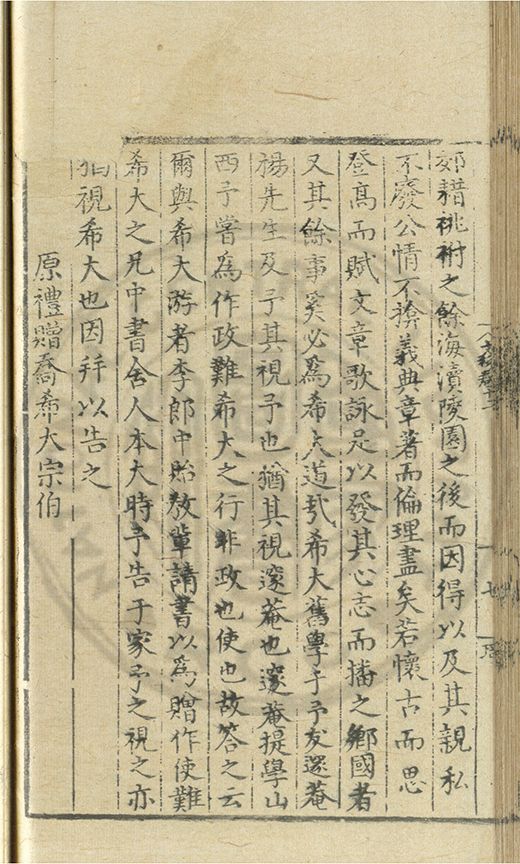 郊耤祧祔之餘海瀆陵園之後而因得以及其親私
不廢公情不揜義典章著而倫理盡矣若懷古而思
登高而賦文章歌詠足以發其心志而播之鄉國者
又其餘事奚必為希大道哉希大舊學于予友邃菴
楊先生及予其視予也猶其視邃菴也邃菴提學山
西予嘗為作政難希大之行非政也使也故答之云
爾與希大游者李郎中貽教輩請書以為贈作使難
希大之兄中書舍人本大時予告于家予之視之亦
猶視希大也因拜以告之
原禮贈喬希大宗伯